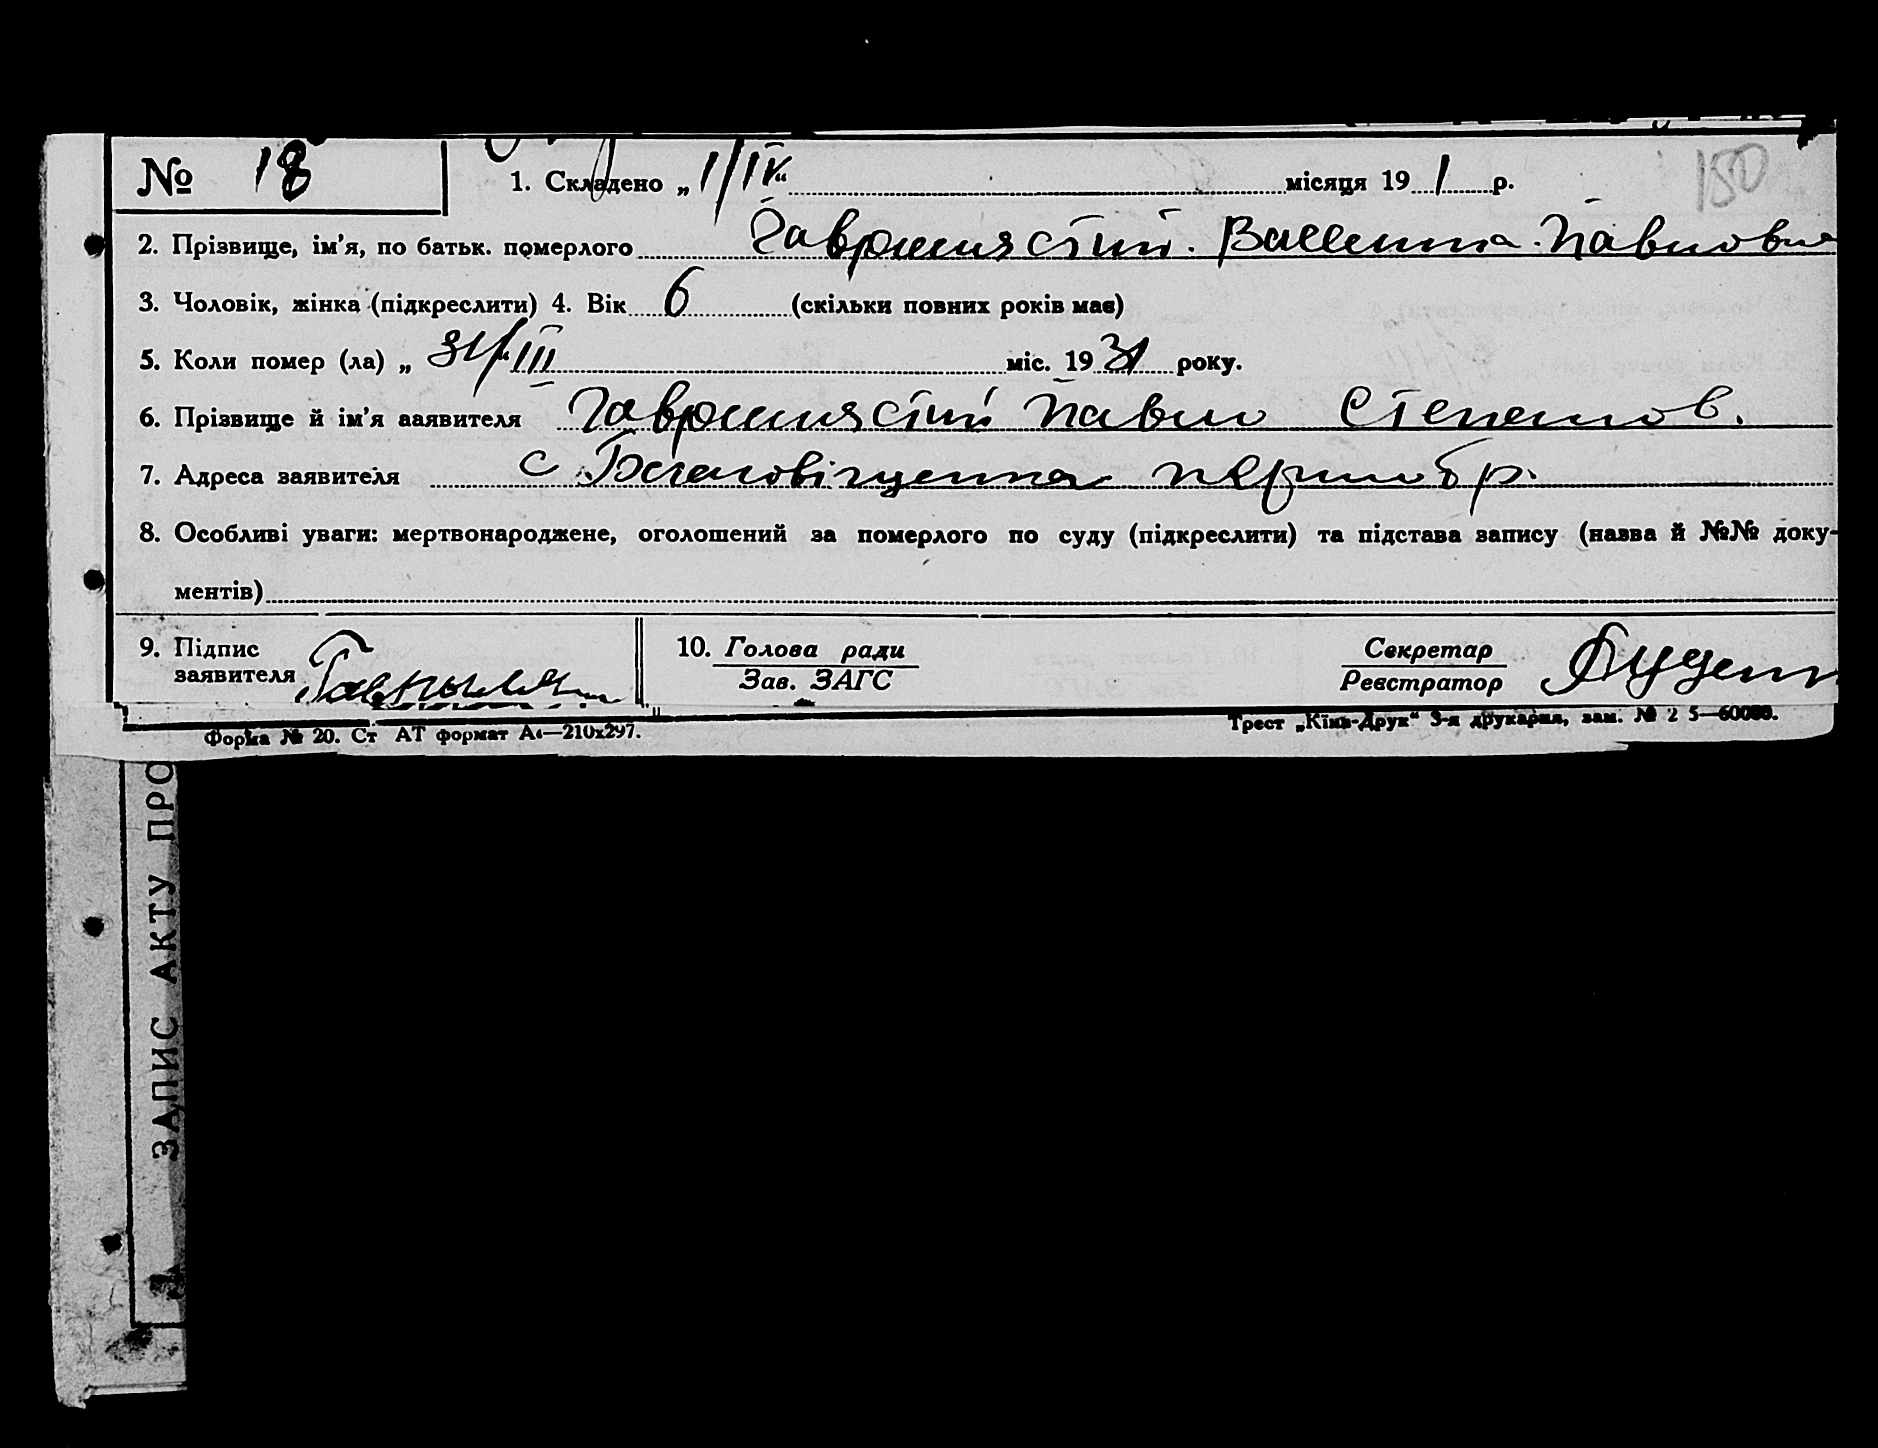 № 18 1. Складено „1/IV“ місяця 19 1 р. 150
2. Прізвище, ім’я, по батьк. померлого Павловна
3. Чоловік, жінка (підкреслити) 4. Вік 6 (скільки повних років має)
5. Коли помер (ла) „31/“III міс. 19 31 року.
6. Прізвище й ім’я заявителя Павло Степанов.
7. Адреса заявителя с
8. Особливі уваги: мертвонароджене, оголошений за померлого по суду (підкреслити) та підстава запису (назва й №№ доку-
ментів)
9. Підпис
заявителя
10. Голова ради
Зав. ЗАГС
Секретар
Реєстратор
Форма № 20. Ст АТ формат А4—210x297.
Трест „Київ-Друк“ 3-я друкарня, зам. №
ЗАПИС АКТУ ПРО